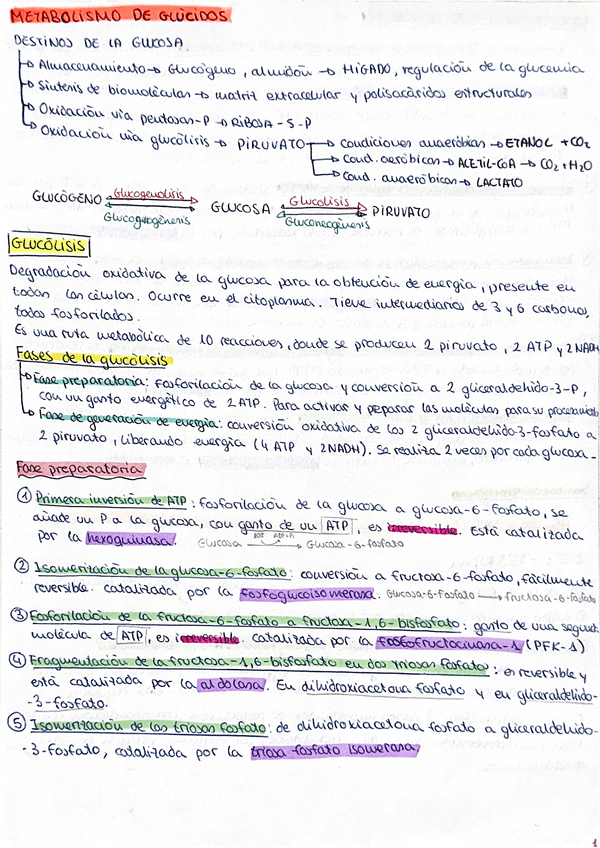 METABOLISMO DE GLÚCIDOS
DESTINOS DE LA GLUCOSA
Almacenamiento → Glucógeno, almidón → HÍGADO, regulación de la glucemia
Síntesis de biomoléculas → matriz extracelular y polisacáridos estructurales
Oxidación vía pentosas-P → RIBOSA-5-P
Oxidación vía glucólisis → PIRUVATO → condiciones anaeróbias → ETANOL + CO2
→ Cond. aeróbicas → ACETIL-CoA → CO2 + H2O
→ Cond. anaeróbicas → LACTATO
GLUCÓGENO Glucogenolisis GLUCOSA Glucolisis PIRUVATO
Glucogenogénesis Gluconeogénesis
GLUCÓLISIS
Degradación oxidativa de la glucosa para la obtención de energía, presente en
todas las células. Ocurre en el citoplasma. Tiene intermediarios de 3 y 6 carbonos,
todos fosforilados.
Es una ruta metabólica de 10 reacciones, donde se producen 2 piruvato, 2 ATP y 2 NADH
Fases de la glucólisis
Fase preparatoria: Fosforilación de la glucosa y conversión a 2 gliceraldehido-3-P,
con un gasto energético de 2 ATP. Para activar y preparar las moléculas para su procesamiento
Fase de generación de energía: conversión oxidativa de los 2 gliceraldehido-3-fosfato a
2 piruvato, liberando energía (4 ATP y 2NADH). Se realiza 2 veces por cada glucosa-
Fase preparatoria
① Primera inversión de ATP: fosforilación de la glucosa a glucosa-6-fosfato, se
añade un P a la glucosa, con gasto de un ATP, es irreversible. Está catalizada
por la hexoquinasa. Glucosa → Glucosa-6-fosfato
② Isomerización de la glucosa-6-fosfato: conversión a fructosa-6-fosfato, fácilmente
reversible. catalizada por la fosfoglucoisomerasa. Glucosa-6-fosfato → fructosa-6-fosfato
③ Fosforilación de la fructosa-6-fosfato a fructosa-1,6-bisfosfato: gasto de una segunda
molécula de ATP, es irreversible. catalizada por la fosfofructocinasa-1 (PFK-1)
④ Fragmentación de la fructosa-1,6-bisfosfato en dos triosas fosfato: es reversible y
está catalizada por la aldolasa. En dihidroxiacetona fosfato y en gliceraldehido-
-3-fosfato.
⑤ Isomerización de las triosas fosfato: de dihidroxiacetona fosfato a gliceraldehido-
-3-fosfato, catalizada por la triosa fosfato isomerasa,
1